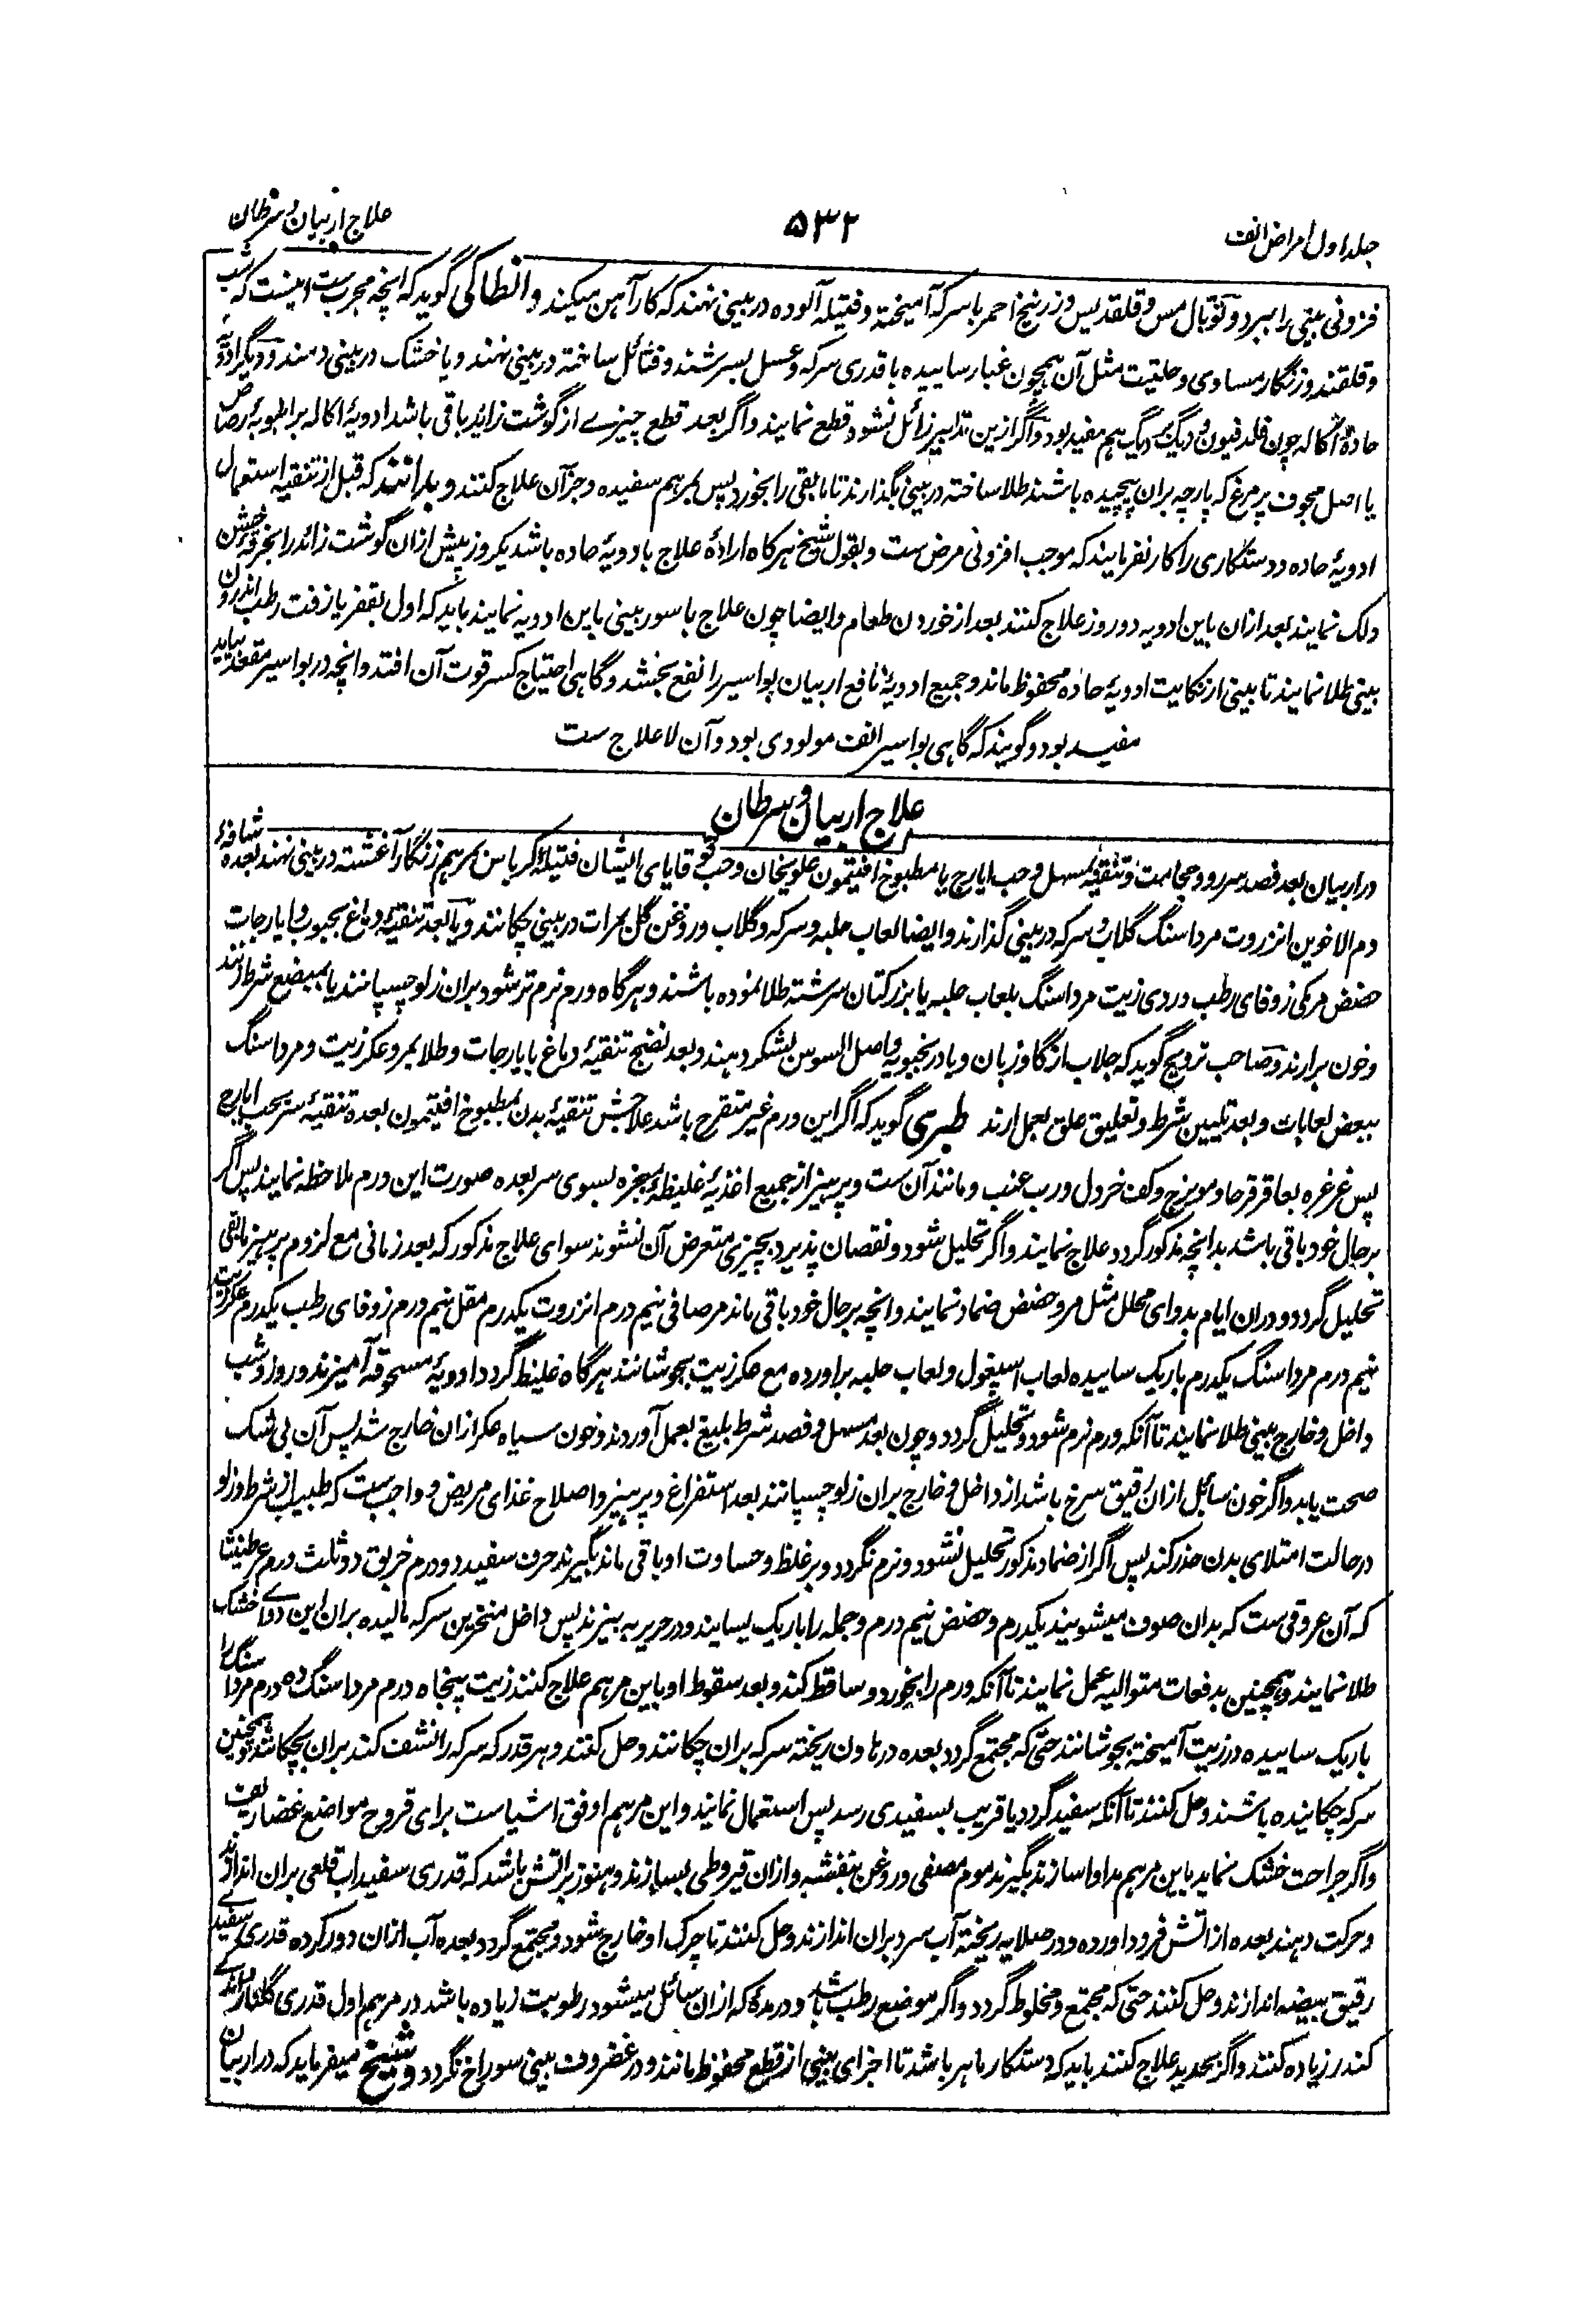 جلد اول امراض انف
۵۳۲
علاج اربیان و سرطان
فزونی بینی را ببرد و توبال مس و قلقدیس و زرنیخ احمر با سرکه آمیخته و فتیله آلوده در بینی نهند که کار آهن میکند و انطاکی گوید که انچه مجرب ست اینست که شب
و قلقند و زنگار مساوی و حلتیت مثل آن همچون غبار ساییده با قدری سرکه و عسل بسرشند و فتائل ساخته در بینی نهند و یا خشک در بینی دمند و دیگر ادویۀ
حادۀ اکاله چون فلدفیون و دیگ بر دیگ هم مفید بود و اگر ازین تدابیر زائل نشود قطع نمایند و اگر بعد قطع چیزے از گوشت زاید باقی باشد ادویۀ اکاله بر انبوبۀ رصاص
یا اصل مجوف پر مرغ که پارچه بران پیچیده باشند طلا ساخته در بینی بگذارند تا مابقی را بخورد پس بمرهم سفیده و جز آن علاج کنند و بدانند که قبل از تنقیه استعمال
ادویۀ حاده و دستکاری را کار نفرمایند که موجب افزونی مرض ست و بقول شیخ هرگاه ارادۀ علاج بادویۀ حاده باشد یکروز پیش ازان گوشت زائد را بخرقۀ خشن
دلک نمایند بعد ازان باین ادویه دو روز علاج کنند بعد از خوردن طعام و ایضا چون علاج باسور بینی باین ادویه نمایند باید که اول بقفر یا زفت رطب اندرون
بینی طلا نمایند تا بینی از نکایت ادویۀ حاده محفوظ ماند و جمیع ادویۀ نافع اربیان بواسیر را نفع بخشد و گاهی احتیاج کسر قوت آن افتد و انچه در بواسیر مقعد بیاید
مفید بود و گویند که گاهی بواسیر الانف مولودی بود و آن لاعلاج ست
علاج اربیان و سرطان
در اربیان بعد فصد سررو و حجامت و تنقیه بمسهل و حب ایارج یا مطبوخ افتیمون علویخان و حب قوقایای ایشان فتیلۀ کرباس بمرهم زنگار آغشته در بینی نهند بعده شافۀ
دم الاخوین انزروت مرداسنگ گلاب و سرکه در بینی گذارند و ایضا لعاب حلبه و سرکه و گلاب و روغن گل بمرات در بینی چکانند و یا بعد تنقیۀ دماغ بحبوب و ایارجات
حضض مر مکی زوفای رطب دردی زیت مرداسنگ بلعاب حلبه یا بزر کتان سرشته طلا نموده باشند و هرگاه ورم نرم تر شود بران زلو چسپانند یا بمبضع شرط زنند
و خون برارند و صاحب ترویح گوید که جلاب از گاوزبان و بادرنجبویه و اصل السوس بشکر دهند و بعد نضج تنقیۀ دماغ بایارجات و طلا بمر و عکر زیت و مرداسنگ
ببعض لعابات و بعد تلیین شرط و تعلیق علق بعمل ارند طبری گوید که اگر این ورم غیر متقرح باشد علاجش تنقیۀ بدن بمطبوخ افتیمون بعده تنقیۀ سر بحب ایارج
پس غرغره بعاقرقرحا و مویزج و کف خردل و رب عنب و مانند آن ست و پرهیز از جمیع اغذیۀ غلیظۀ مبخره بسوی سر بعده صورت این ورم ملاحظه نمایند پس اگر
بر حال خود باقی باشد بدانچه مذکور گردد علاج نمایند و اگر تحلیل شود و نقصان پذیرد بچیزی متعرض آن نشوند سوای علاج مذکور که بعد زمانی مع لزوم پرهیز مابقی
تحلیل گردد و دران ایام بدوای محلل مثل مر و حضض ضماد نمایند و انچه بر حال خود باقی ماند مر صافی نیم درم انزروت یکدرم مقل نیم درم زوفای رطب یکدرم عکر زیت
نیم درم مرداسنگ یکدرم باریک ساییده لعاب اسپغول و لعاب حلبه براورده مع عکر زیت بجوشانند هرگاه غلیظ گردد ادویۀ مسحوقه آمیزند و روز و شب
داخل و خارج بینی طلا نمایند تا آنکه ورم نرم شود و تحلیل گردد و چون بعد مسهل و فصد شرط بلیغ بعمل آوردند و خون سیاه عکر ازان خارج شد پس آن بی شک
صحت یابد و اگر خون سائل ازان رقیق سرخ باشد از داخل و خارج بران زلو چسپانند بعد استفراغ و پرهیز و اصلاح غذای مریض و واجب ست که طبیب از شرط و زلو
در حالت امتلای بدن حذر کند پس اگر از ضماد مذکور تحلیل نشود و نرم نگردد و بر غلظ و جساوت او باقی ماند بگیرند حرف سفید دو درم خربق دو ثلث درم عرطنیثا
که آن عروقی ست که بدان صوف میشویند یکدرم و حضض نیم درم و جمله را باریک بسایند و در حریر به بیزند پس داخل منخرین سرکه مالیده بران این دوای خشک
طلا نمایند و همچنین بدفعات متوالیه عمل نمایند تا آنکه ورم را بخورد و ساقط کند و بعد سقوط او باین مرهم علاج کنند زیت پنجاه درم مرداسنگ ده درم مرداسنگ را
باریک ساییده در زیت آمیخته بجوشانند حتی که مجتمع گردد بعده در هاون ریخته سرکه بران چکانند و حل کنند و هر قدر که سرکه را نشف کند بران بچکانند و همچنین
سرکه چکانیده باشند و حل کنند تا آنکه سفید گردد یا قریب بسفیدی رسد پس استعمال نمایند و این مرهم اوفق اشیاست برای قروح مواضع غضاریف
و اگر جراحت خشک نماید باین مرهم مداوا سازند بگیرند موم مصفی و روغن بنفشه و ازان قیروطی بسازند و هنوز بر آتش باشد که قدری سفیداب قلعی بران اندازند
و حرکت دهند بعده از آتش فرود اورده و در صلایه ریخته آب سرد بران اندازند و حل کنند تا چرک او خارج شود و مجتمع گردد بعده آب ازان دور کرده قدری سفیدے
رقیق بیضه اندازند و حل کنند حتی که مجتمع و مخلوط گردد و اگر موضع رطب باشد و در مده که ازان سائل میشود رطوبت زیاده باشد در مرهم اول قدری گلنار
کندر زیاده کنند و اگر بحدید علاج کنند باید که دستکار ماهر باشد تا اجزای بینی از قطع محفوظ مانند و در غضروف بینی سوراخ نگردد و شیخ میفرماید که در اربیان